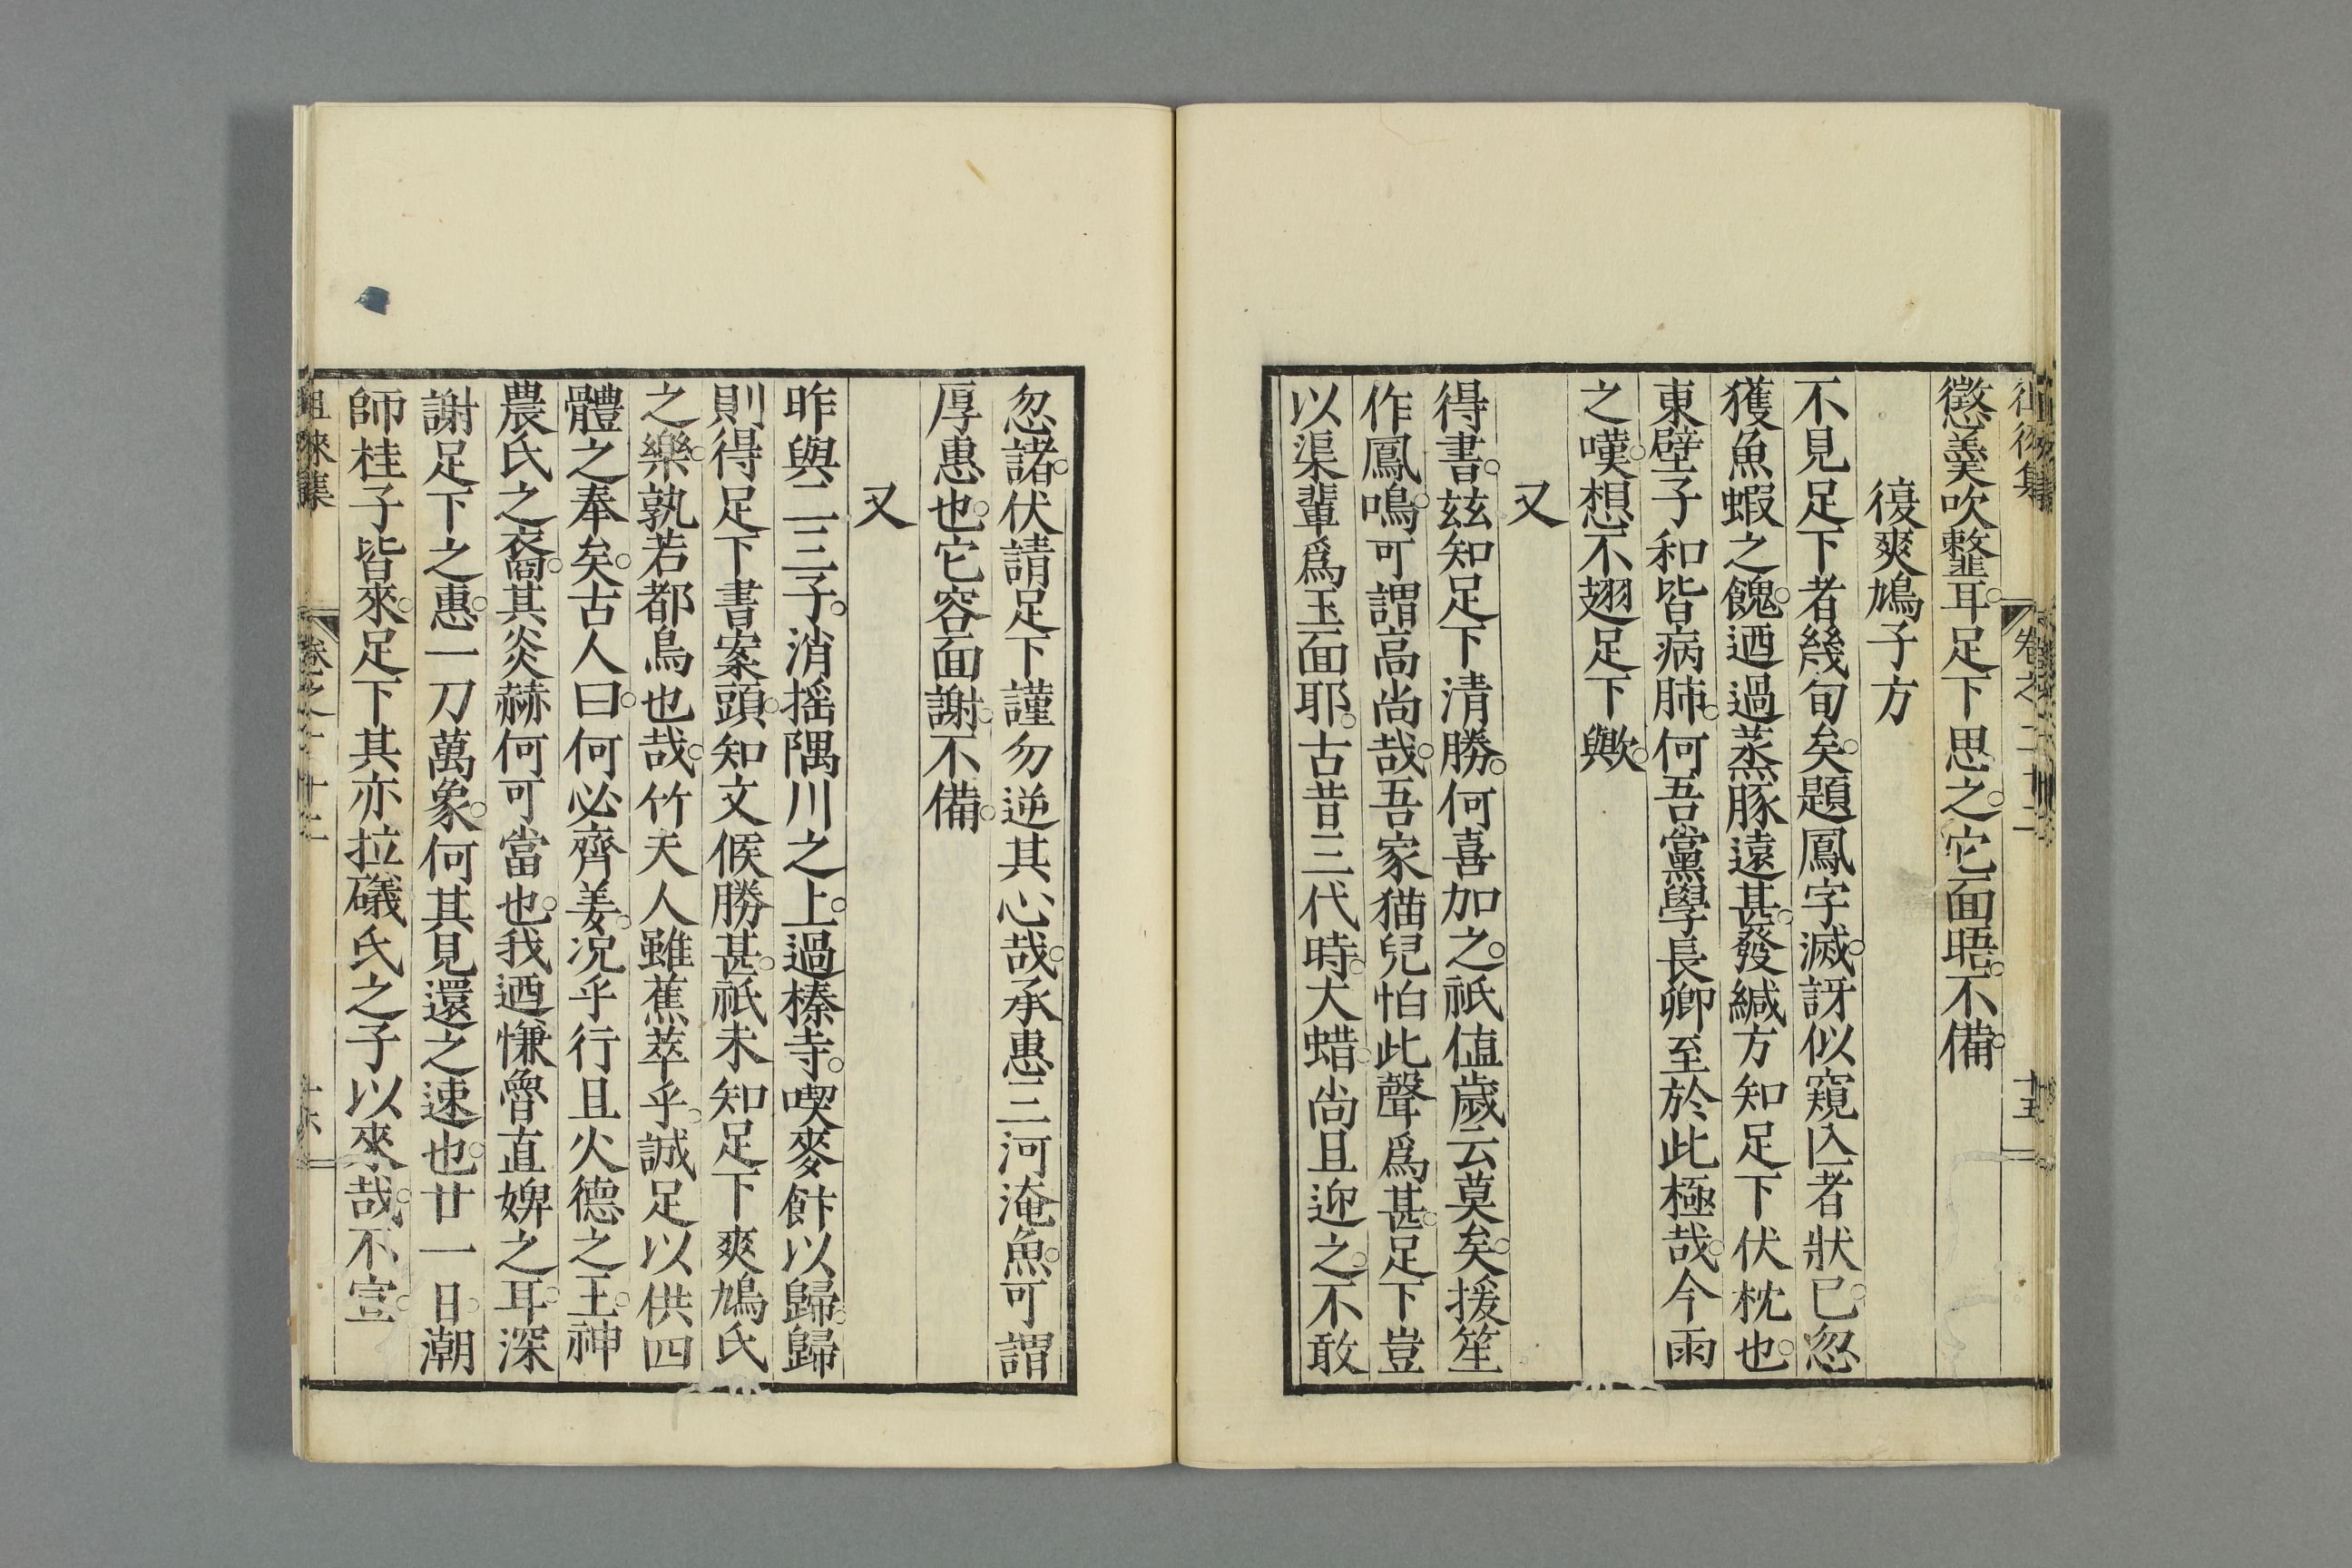 懲羹吹韲耳。足下思之。它面晤。不備。
復爽鳩子方
不見足下者幾旬矣。題鳳字滅。訝似窺亾者狀已。忽
獲魚蝦之餽。迺過蒸豚遠甚。發緘方知足下伏枕也。
東壁子和皆病肺。何吾黨學長卿至於此極哉。今雨
之嘆。想不翅足下歟。
又
得書。玆知足下清勝。何喜加之。祇値歲云莫矣。援笙
作鳳鳴。可謂高尚哉。吾家猫兒怕此聲爲甚。足下豈
以渠輩爲玉面耶。古昔三代時。大蜡。尚且迎之。不敢
忽諸。伏請足下謹勿逆其心哉。承惠三河淹魚。可謂
厚惠也。它容面謝。不備。
又
昨與二三子。消揺隅川之上。過榛寺。喫麥餅以歸。歸
則得足下書案頭。知文候勝甚。祇未知足下爽鳩氏
之樂。孰若都鳥也哉。竹夫人雖蕉萃乎。誠足以供四
體之奉矣。古人曰。何必齊姜。況乎行且火德之王。神
農氏之裔。其炎赫何可當也。我迺慊魯直婢之耳。深
謝足下之惠。一刀萬象。何其見還之速也。廿一日。潮
師桂子皆來。足下其亦拉礒氏之子以來哉。不宣。
徂徠集 卷之二十二